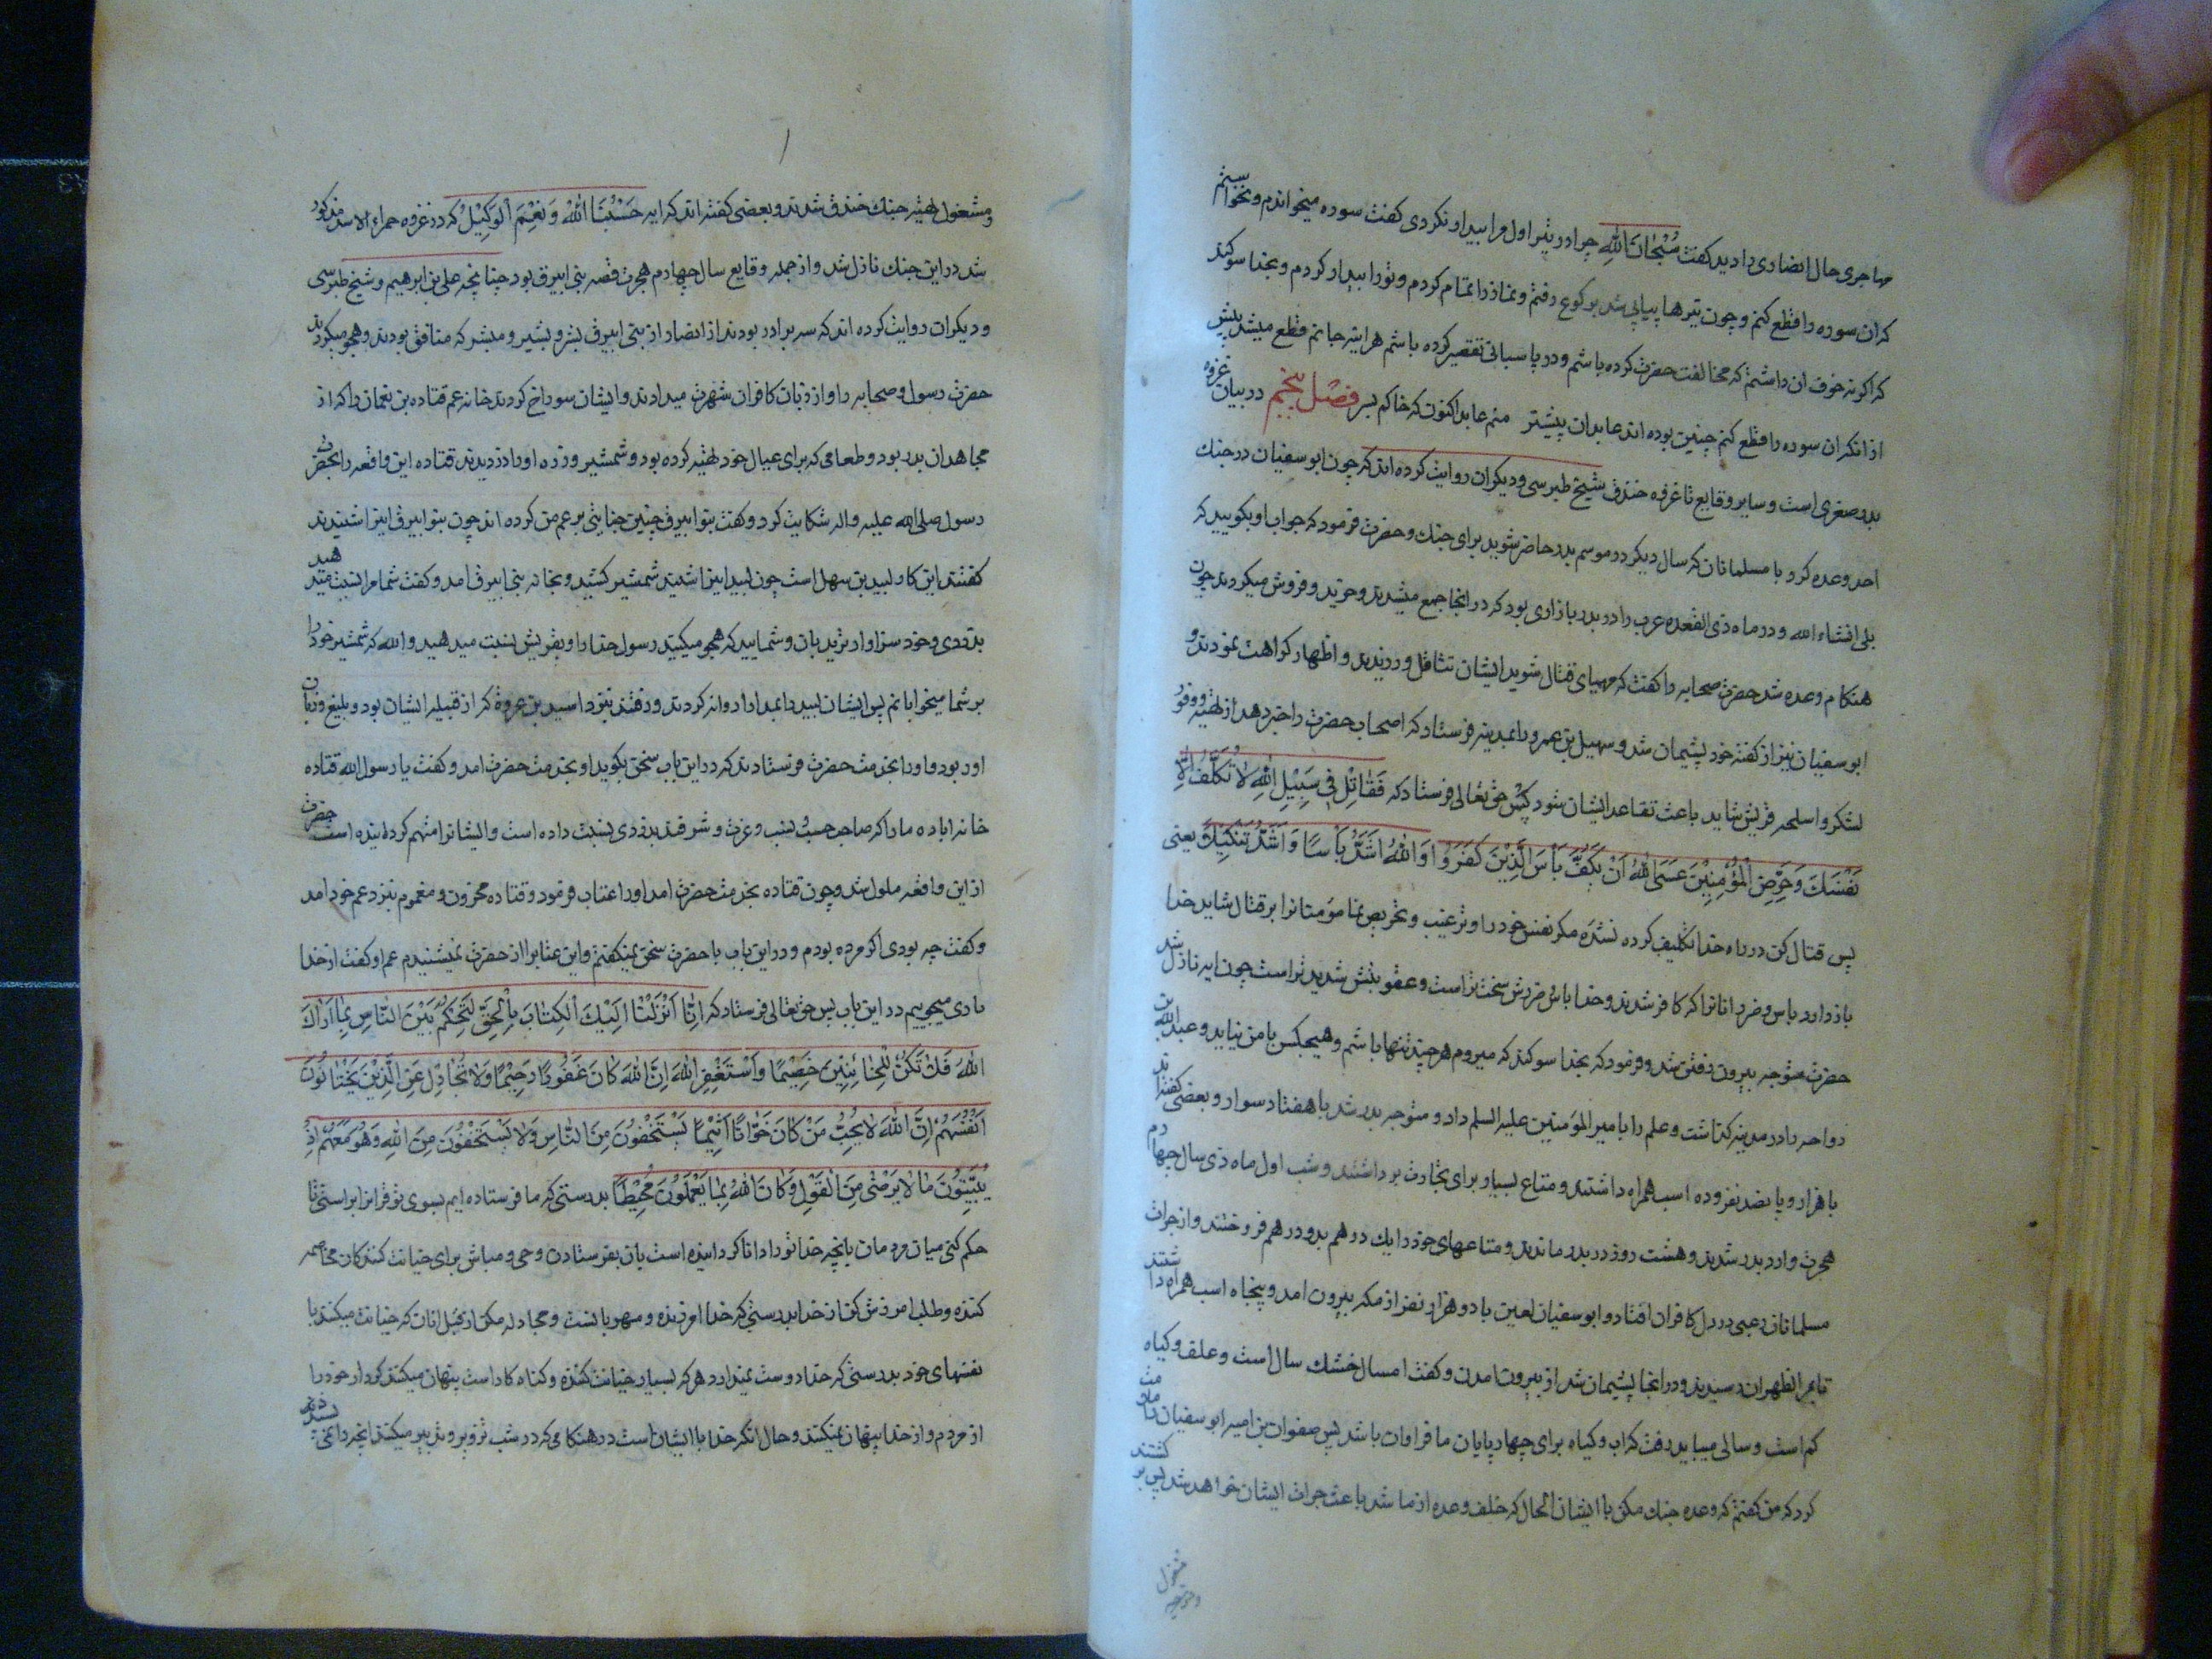 مهاجری حال انصاری را دید گفت سُبْحَانَ اللَّهِ چرا در تیر اول مرا بیدار نکردی گفت سوره میخواندم و نخواستم
که ان سوره را قطع کنم و چون تیرها پیاپی شد برکوع رفتم و نماز را تمام کردم و تو را بیدار کردم و بخدا سوکند
که اکر نه خوف ان داشتم که مخالفت حضرت کرده باشم و در پاسبانی تقصیر کرده باشم هراینه جانم قطع میشد پیش
از انکه ان سوره را قطع کنم چنین بوده اند عابدان پیشتر منم عابد اکنون که خاکم بسر فصل پنجم در بیان غزوه
بدر صغری است و سایر وقایع تا غزوه خندق شیخ طبرسی و دیکران روایت کرده اند که چون ابو سفیان در جنک
احد وعده کرد با مسلمانان که سال دیکر در موسم بدر حاضر شوید برای جنک و حضرت فرمود که جواب او بکویید که
بلی انشاء الله و در ماه ذی القعده عرب را در بدر بازاری بود که در انجا جمع میشدند و خرید و فروش میکردند چون
هنکام وعده شد حضرت صحابه را گفت که مهیای قتال شوید ایشان تثاقل ورزیدند و اظهار کراهت نمودند و
ابو سفیان نیز از کفته خود پشیمان شد و سهیل بن عمرو را بمدینه فرستاد که اصحاب حضرت را خبر دهد از تهیه و وفور
لشکر و اسلحه قریش شاید باعث تقاعد ایشان شود پس حق تعالی فرستاد که فَقَاتِلْ فِي سَبِيلِ اللَّهِ لَا تُكَلَّفُ إِلَّا
نَفْسَكَ وَحَرِّضِ الْمُؤْمِنِينَ عَسَى اللَّهُ أَنْ يَكُفَّ بَأْسَ الَّذِينَ كَفَرُوا وَاللَّهُ أَشَدُّ بَأْسًا وَأَشَدُّ تَنْكِيلًا یعنی
پس قتال کن در راه خدا تکلیف کرده نشده مکر نفس خود را و ترغیب و تحریص نما مؤمنانرا بر قتال شاید خدا
باز دارد باس و ضرر انانرا که کافر شدند و خدا باس و ضررش سخت تر است و عقوبتش شدید تر است چون ایه نازل شد
حضرت متوجه بیرون رفتن شد و فرمود که بخدا سوکند که میروم هرچند تنها باشم و هیچکس با من نیاید و عبد الله بن
رواحه را در مدینه کذاشت و علم را بامیر المؤمنین علیه السلم داد و متوجه بدر شد با هفتاد سوار و بعضی کفته اند
با هزار و پانصد نفر و ده اسب همراه داشتند و متاع بسیار برای تجارت برداشتند و شب اول ماه ذی سال چهارم
هجرت وارد بدر شدند و هشت روز در بدر ماندند و متاعهای خود را یک درهم بدو درهم فروختند و از جرات
مسلمانان رعبی در دل کافران افتاد و ابو سفیان لعین با دو هزار نفر از مکه بیرون امد و پنجاه اسب همراه داشتند
تا بمر الظهران رسیدند و در انجا پشیمان شد از بیرون امدن و کفت امسال خشک سال است و علف و کیاه
کم است و سالی میباید رفت که اب و کیاه برای چهارپایان ما فراوان باشد پس صفوان بن امیه ابو سفیان را ملامت
کرد که من کفتم که وعده جنک مکن با ایشان الحال که خلف وعده از ما شد باعث جرات ایشان خواهد شد پس بر کشتند
و متوجه
مشغول
و مشغول تهیه جنک خندق شدند و بعضی کفته اند که ایه حَسْبُنَا اللَّهُ وَنِعْمَ الْوَكِيلُ که در غزوه حمراء الاسد مذکور
شد در این جنک نازل شد و از جمله وقایع سال چهارم هجرت قصه بنی ابیرق بود چنانچه علی بن ابرهیم و شیخ طبرسی
و دیکران روایت کرده اند که سه برادر بودند از انصار از بنی ابیرق بشر و بشیر و مبشر که منافق بودند و هجو میکردند
حضرت رسول و صحابه را و از زبان کافران شهرت میدادند و ایشان سوراخ کردند خانه عم قتاده بن نعمان را که از
مجاهدان بدر بود و طعامی که برای عیال خود تهیه کرده بود و شمشیر و زره او را دزدیدند قتاده این واقعه را بحضرت
رسول صلی الله علیه واله شکایت کرد و کفت بنو ابیرق چنین جنایتی بر عم من کرده اند چون بنو ابیرق اینرا شنیدند
کفتند این کار لبید بن سهل است چون لبید اینرا شنید شمشیر کشید و بخانه بنی ابیرق امد و کفت شما مرا نسبت میدهید
بدزدی و خود سزاوار ترید بان و شمایید که هجو میکنید رسول خدا را و بقریش نسبت میدهید والله که شمشیر خود را
بر شما میخوابانم پس ایشان لبید را بمدارا روانه کردند و رفتند بنزد اسید بن عروة که از قبیله ایشان بود و بلیغ و زبان
اور بود و او را بخدمت حضرت فرستادند که در این باب سخن بکوید او بخدمت حضرت امد و کفت یا رسول الله قتاده
خانه اباده ما را که صاحب حسب و نسب و عزت و شرفند بدزدی نسبت داده است و ایشانرا متهم کردانیده است حضرت
از این واقعه ملول شد و چون قتاده بخدمت حضرت امد او را عتاب فرمود و قتاده محزون و مغموم بنزد عم خود امد
و کفت چه بودی اکر مرده بودم و در این باب با حضرت سخن نمیکفتم و این عتابرا از حضرت نمیشنیدم عم او کفت از خدا
یاری میجوییم در این باب پس حق تعالی فرستاد که إِنَّا أَنْزَلْنَا إِلَيْكَ الْكِتَابَ بِالْحَقِّ لِتَحْكُمَ بَيْنَ النَّاسِ بِمَا أَرَاكَ
اللَّهُ فَلَا تَكُنْ لِلْخَائِنِينَ خَصِيمًا وَاسْتَغْفِرِ اللَّهَ إِنَّ اللَّهَ كَانَ غَفُورًا رَحِيمًا وَلَا تُجَادِلْ عَنِ الَّذِينَ يَخْتَانُونَ
أَنْفُسَهُمْ إِنَّ اللَّهَ لَا يُحِبُّ مَنْ كَانَ خَوَّانًا أَثِيمًا يَسْتَخْفُونَ مِنَ النَّاسِ وَلَا يَسْتَخْفُونَ مِنَ اللَّهِ وَهُوَ مَعَهُمْ إِذْ
يُبَيِّتُونَ مَا لَا يَرْضَى مِنَ الْقَوْلِ وَكَانَ اللَّهُ بِمَا يَعْمَلُونَ مُحِيطًا بدرستی که ما فرستاده ایم بسوی تو قرانرا براستی تا
حکم کنی میان مردمان بانچه خدا تو را دانا کردانیده است بان بفرستادن وحی و مباش برای خیانت کنندکان مخاصمه
کننده و طلب امرزش کن از خدا بدرستی که خدا امرزنده و مهربانست و مجادله مکن از قبل انان که خیانت میکنند با
نفسهای خود بدرستی که خدا دوست نمیدارد هر که بسیار خیانت کننده و کناه کار است پنهان میکنند کردار خود را
از مردم و از خدا پنهان نمیکنند و حال انکه خدا با ایشان است در هنکامی که در شب تزویر و تدبیر میکنند انچه را نمی پسندد